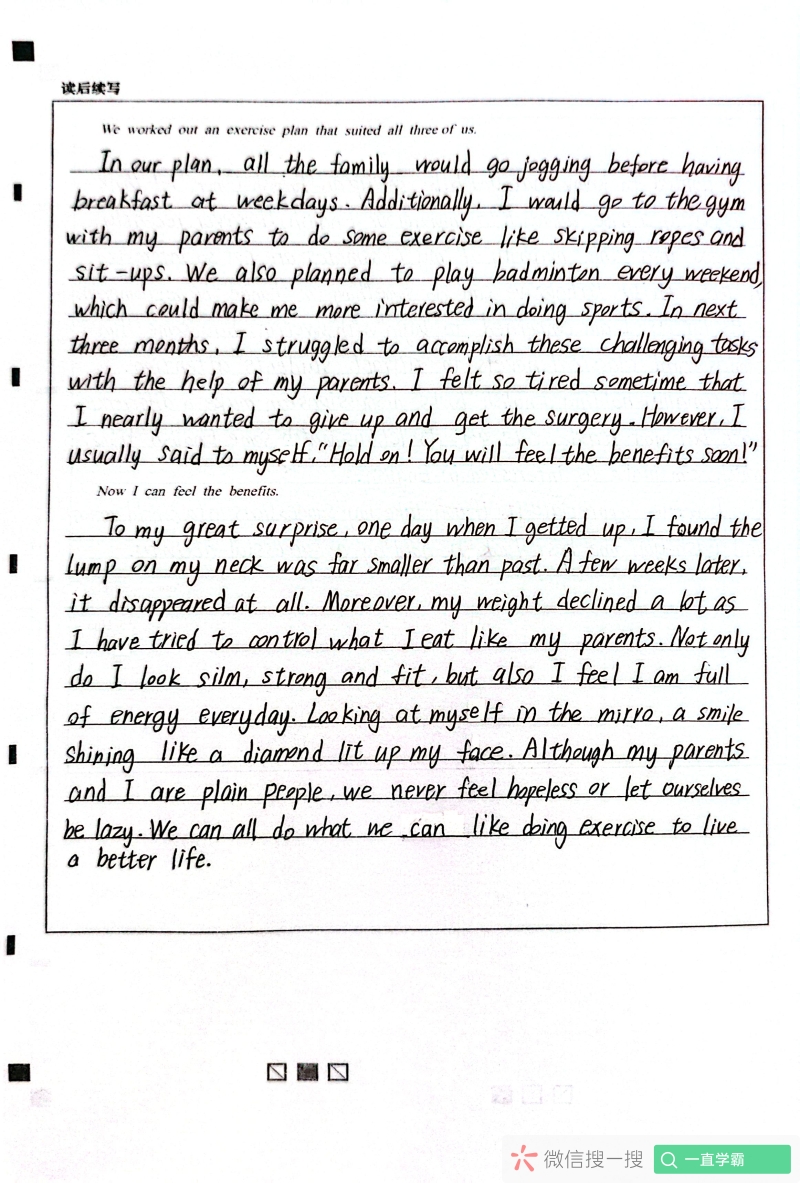 读后续写
We worked out an exercise plan that suited all three of us.
In our plan, all the family would go jogging before having
breakfast at weekdays. Additionally, I would go to the gym
with my parents to do some exercise like skipping ropes and
sit-ups. We also planned to play badminton every weekend,
which could make me more interested in doing sports. In next
three months, I struggled to accomplish these challenging tasks
with the help of my parents. I felt so tired sometime that
I nearly wanted to give up and get the surgery. However, I
usually said to myself, "Hold on! You will feel the benefits soon!"
Now I can feel the benefits.
To my great surprise, one day when I getted up, I found the
lump on my neck was far smaller than past. A few weeks later,
it disappeared at all. Moreover, my weight declined a lot as
I have tried to control what I eat like my parents. Not only
do I look silm, strong and fit, but also I feel I am full
of energy everyday. Looking at myself in the mirro, a smile
shining like a diamond lit up my face. Although my parents
and I are plain people, we never feel hopeless or let ourselves
be lazy. We can all do what we can like doing exercise to live
a better life.
微信搜一搜
一直学霸